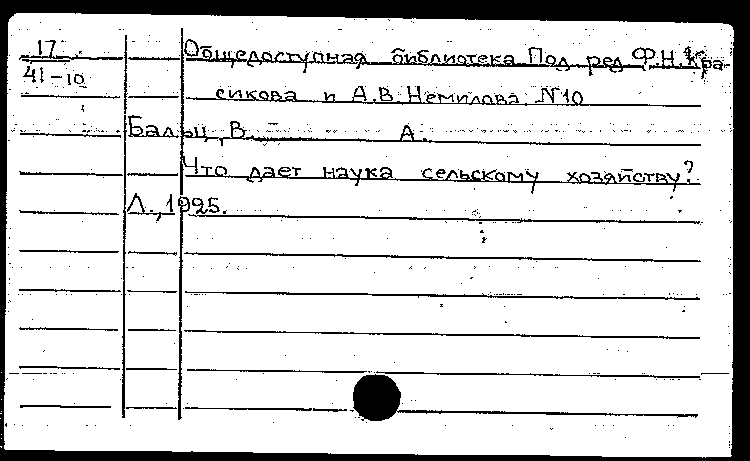 17
41-10
Общедоступная библиотека Под ред Ф.Н.Кра-
сикова и А.В.Немилова. N10
Бальц, В. А.
Что дает наука сельскому хозяйству?
Л., 1925.